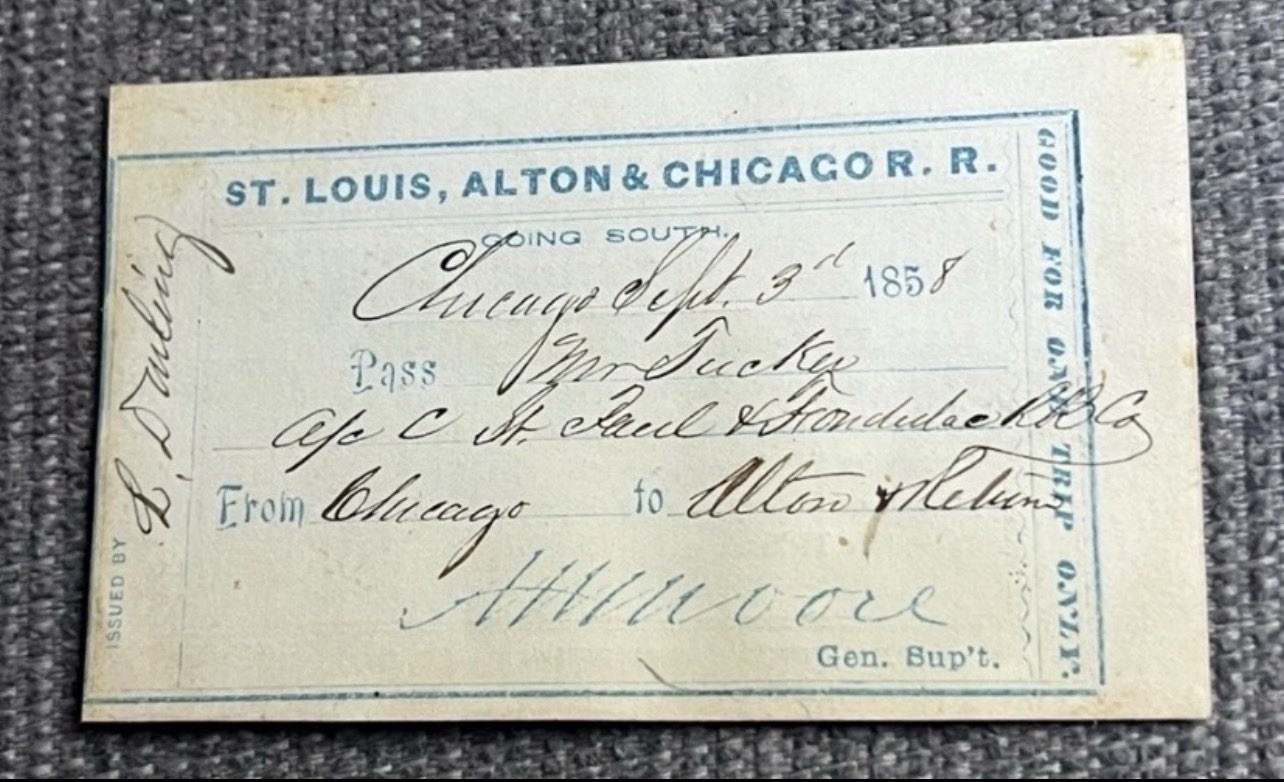 ST. LOUIS, ALTON & CHICAGO R. R.
GOING SOUTH.
Chicago Sept. 3d 1858
Pass Mr Tucker
a/c C St. Paul & Fondulac RR Co
From Chicago to Alton & Return
A H Moore
Gen. Sup't.
ISSUED BY L. Darling
GOOD FOR ONE TRIP ONLY.